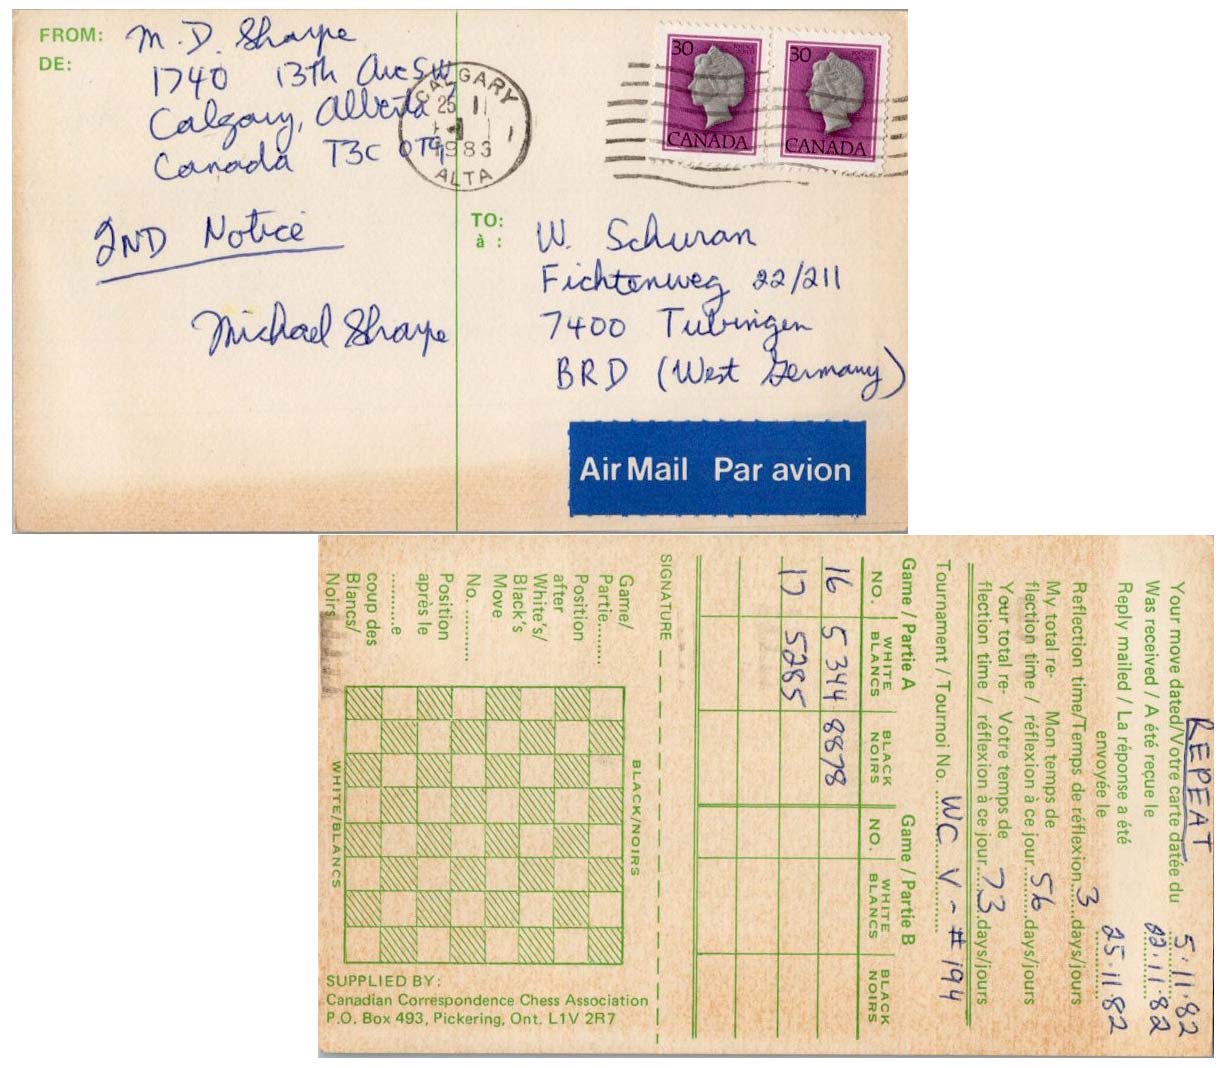 FROM: M. D. Sharpe
DE:
1740 13th Ave SW
Calgary, Alberta
Canada T3C 0T9
CALGARY
25 II
1
1983
ALTA
30
CANADA
30
CANADA
2ND Notice
Michael Sharpe
TO: W. Schuran
à :
Fichtenweg 22/211
7400 Tubingen
BRD (West Germany)
Air Mail Par avion
REPEAT
Your move dated/Votre carte datée du 5.11.82
Was received / A été reçue le 22.11.82
Reply mailed / La réponse a été
envoyée le 25.11.82
Reflection time/Temps de réflexion 3 days/jours
My total re- Mon temps de
flection time / réflexion à ce jour 56 days/jours
Your total re- Votre temps de
flection time / réflexion à ce jour 73 days/jours
Tournament / Tournoi No. WC V - #194
Game / Partie A Game / Partie B
NO. WHITE BLANCS BLACK NOIRS NO. WHITE BLANCS BLACK NOIRS
16 5344 8878
17 5285
SIGNATURE
Game/
Partie........
Position
after
White's/
Black's
Move
No. ............
Position
après le
..........e
coup des
Blancs/
Noirs
BLACK/NOIRS
WHITE/BLANCS
SUPPLIED BY:
Canadian Correspondence Chess Association
P.O. Box 493, Pickering, Ont. L1V 2R7